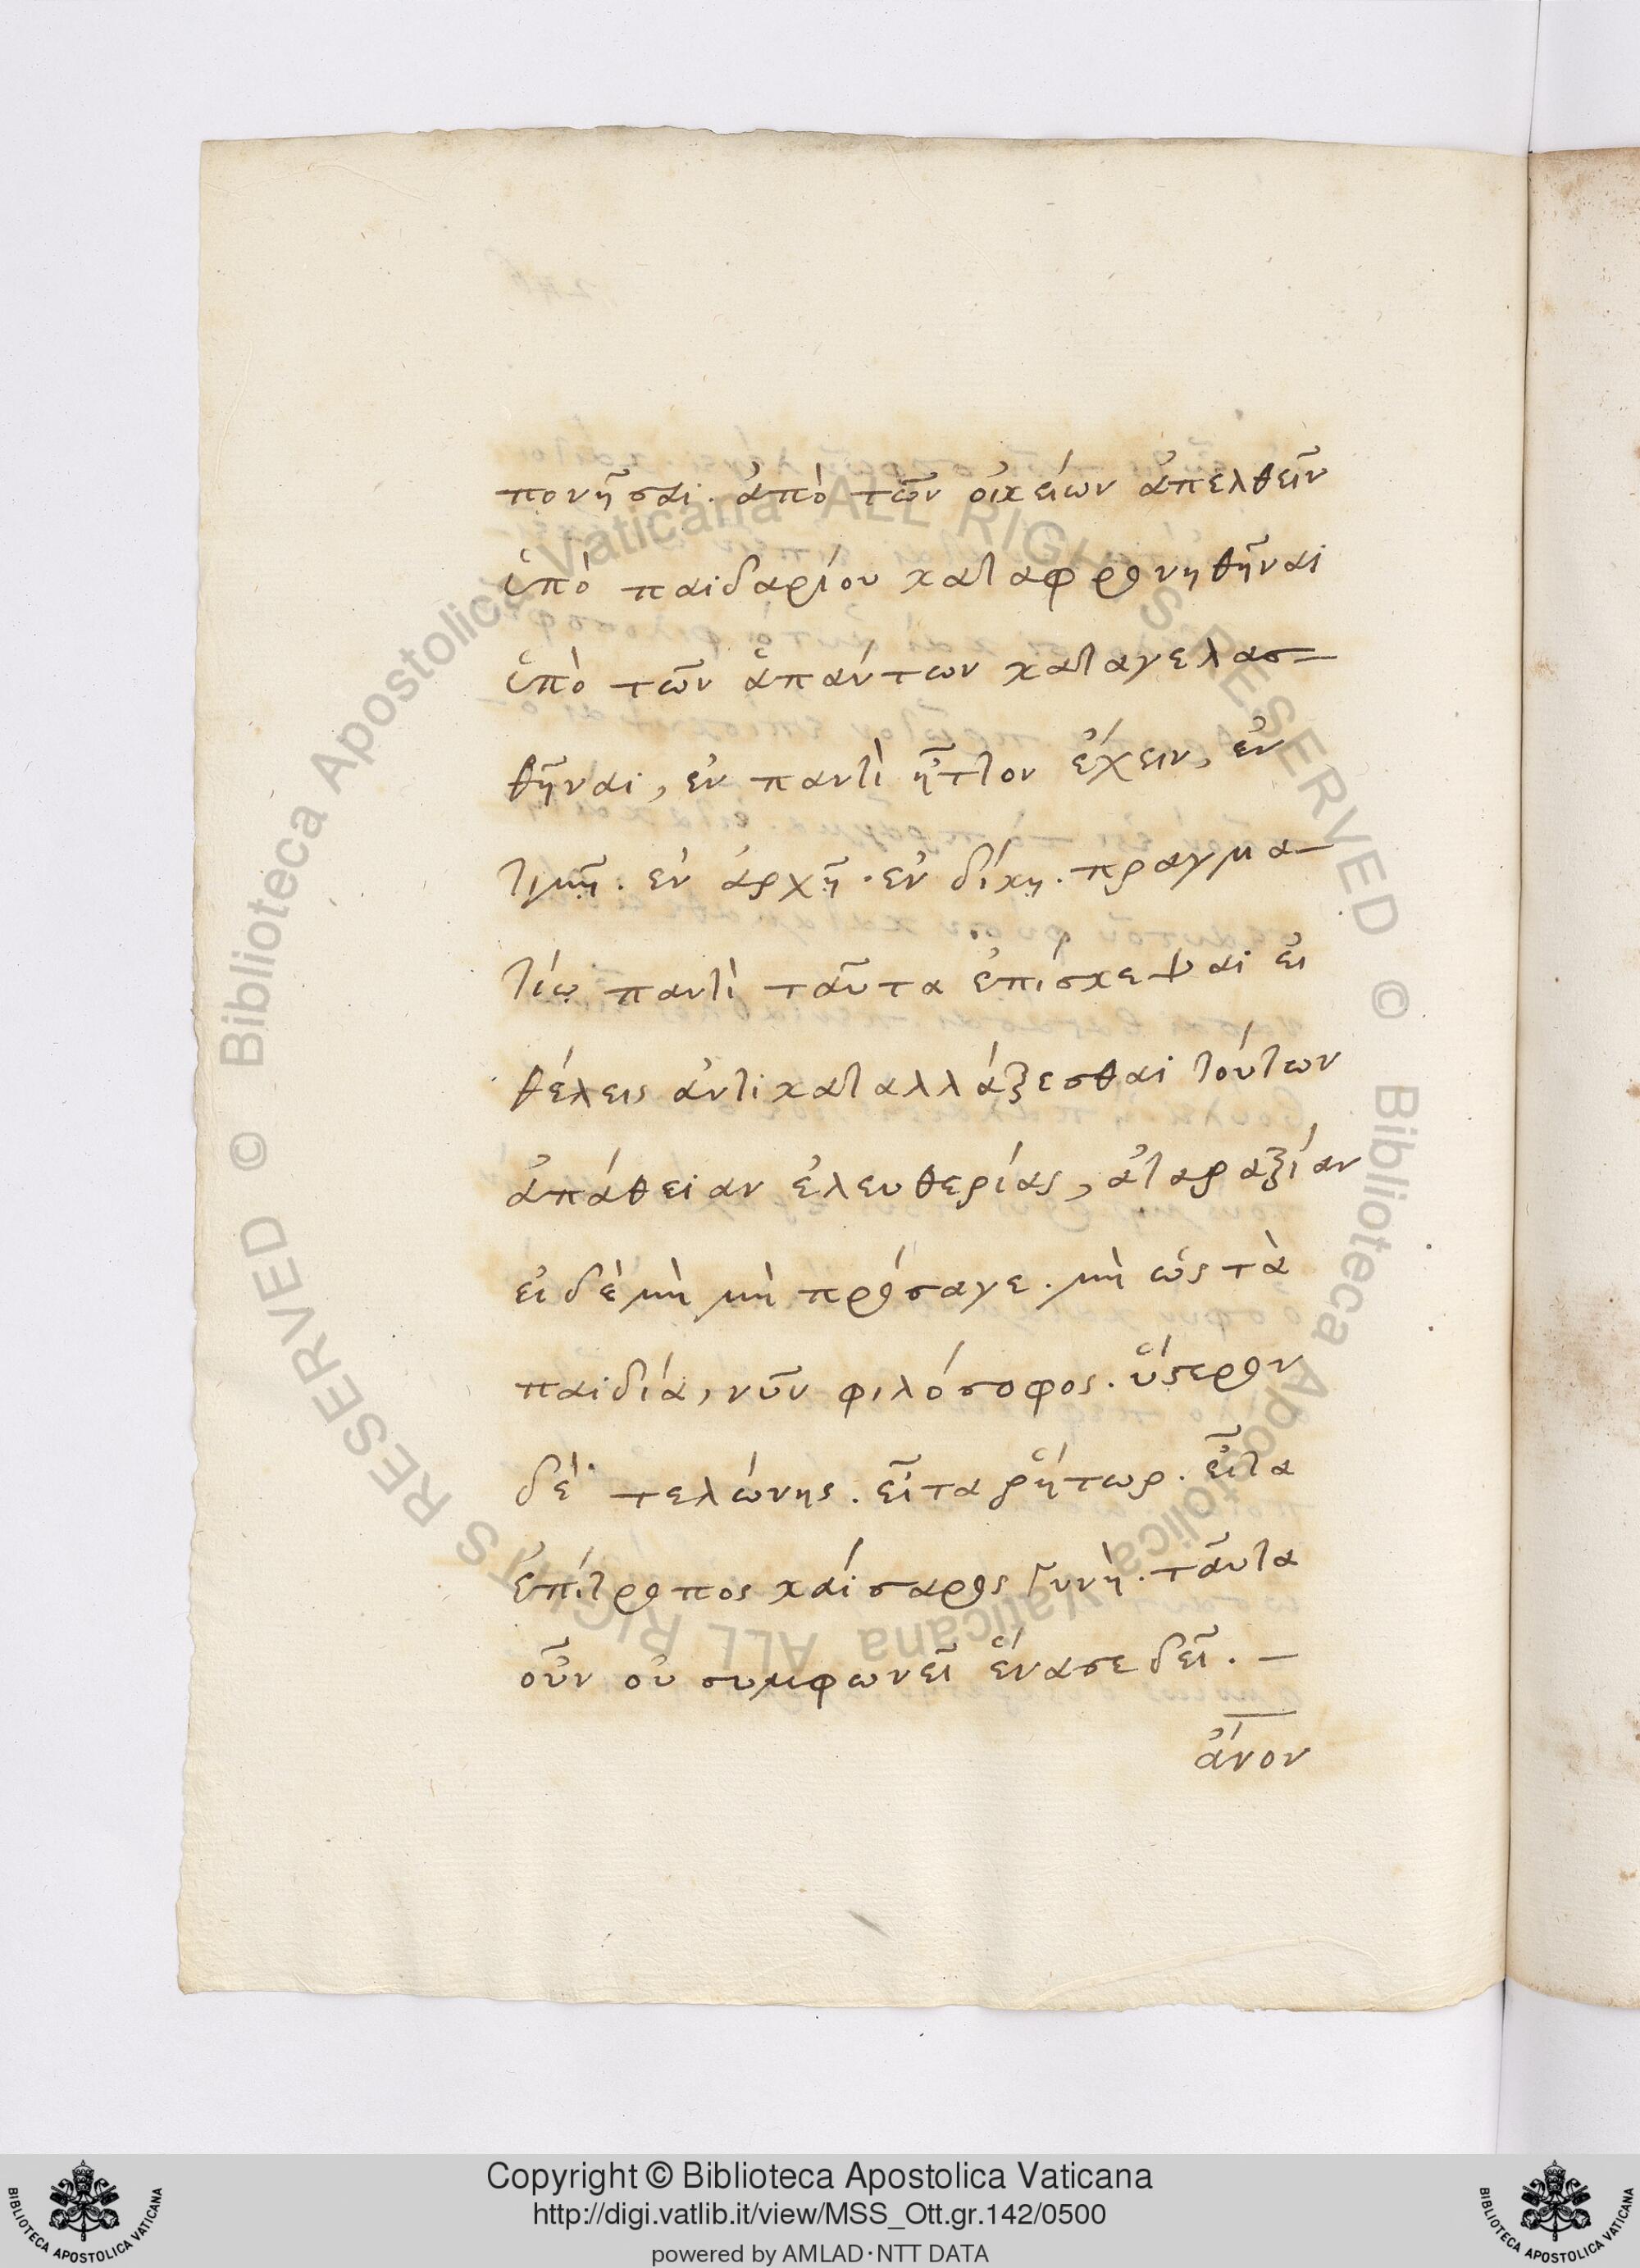 πονῆσαι. ἀπὸ τῶν οἰκείων ἀπελθεῖν
ὑπὸ παιδαρίου καταφρονηθῆναι
ὑπὸ τῶν ἁπάντων καταγελασ-
θῆναι, ἐν παντὶ ἧττον ἔχειν, ἐν
τιμῇ. ἐν ἀρχῇ. ἐν δίκῃ. πραγμα-
τίῳ παντὶ ταῦτα ἐπίσκεψαι εἰ
θέλεις ἀντικαταλλάξεσθαι τούτων
ἀπάθειαν ἐλευθερίας, ἀταραξίαν
εἰ δὲ μὴ μὴ πρόσαγε. μὴ ὡς τὰ
παιδία, νῦν φιλόσοφος. ὕστερον
δὲ τελώνης. εἶτα ῥήτωρ. εἶτα
ἐπίτροπος καίσαρος γυνὴ. ταῦτα
οὖν οὐ συμφωνεῖ ἕνα σε δεῖ. -
ἄνον
Biblioteca Apostolica Vaticana ALL RIGHTS RESERVED © Biblioteca Apostolica Vaticana ALL RIGHTS RESERVED ©
Copyright © Biblioteca Apostolica Vaticana
http://digi.vatlib.it/view/MSS_Ott.gr.142/0500
powered by AMLAD·NTT DATA
BIBLIOTECA APOSTOLICA VATICANA
BIBLIOTECA APOSTOLICA VATICANA